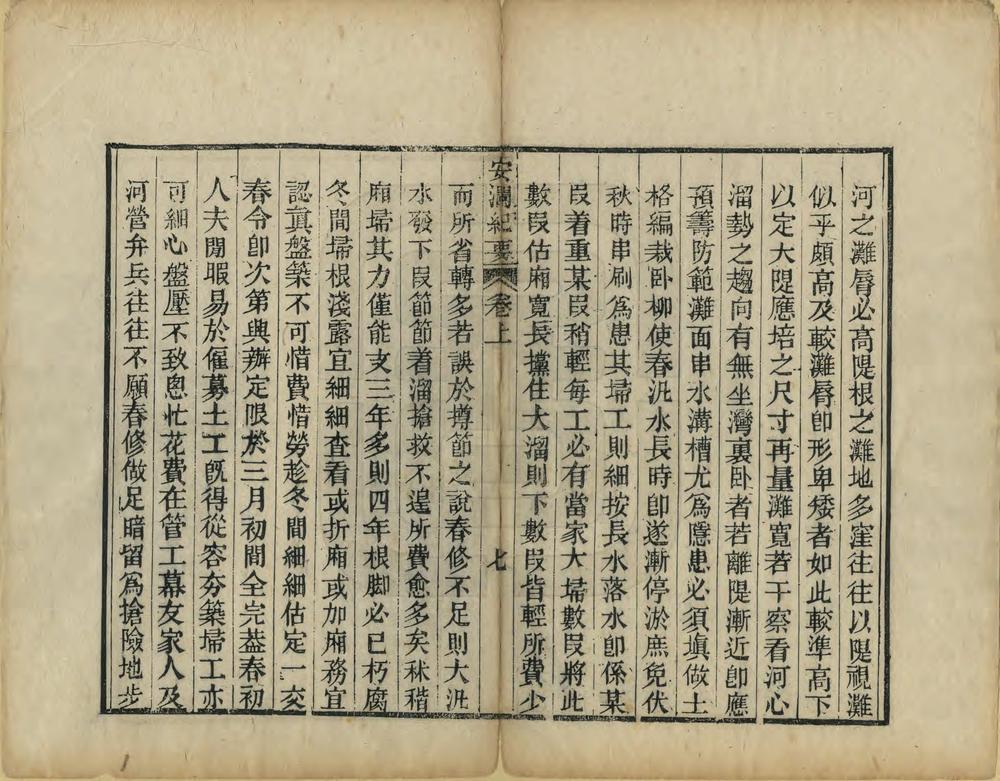 河之灘脣必高隄根之灘地多窪往往以隄視灘
似乎頗高及較灘脣卽形卑矮者如此較準高下
以定大隄應培之尺寸再量灘寬若干察看河心
溜勢之趨向有無坐灣裏卧者若離隄漸近卽應
預籌防範灘面串水溝槽尤爲隱患必須塡做土
格編栽卧柳使春汛水長時卽遂漸停淤庶免伏
秋時串刷爲患其埽工則細按長水落水卽係某
叚着重某叚稍輕每工必有當家大埽數叚將此
數叚估廂寬長攩住大溜則下數叚皆輕所費少
安瀾紀要 卷上 七
而所省轉多若誤於撙節之說春修不足則大汛
水發下叚節節着溜搶救不遑所費愈多矣秫稭
廂埽其力僅能支三年多則四年根脚必已朽腐
冬間埽根淺露宜細細查看或折廂或加廂務宜
認眞盤築不可惜費惜勞趁冬間細細估定一交
春令卽次第興辦定限於三月初間全完葢春初
人夫閒暇易於僱募土工旣得從容夯築埽工亦
可細心盤壓不致悤忙花費在管工幕友家人及
河營弁兵往往不願春修做足暗留爲搶險地步